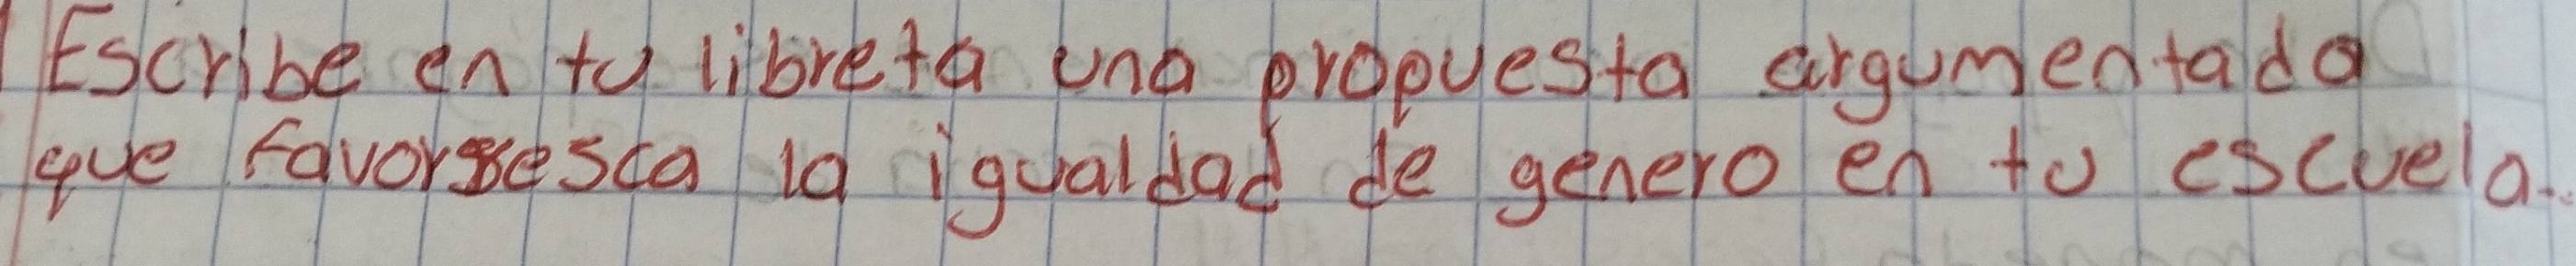 Escribe en tu libreta una propuesta argumentada
que favoresesca la igualdad de genero en tu escuela.